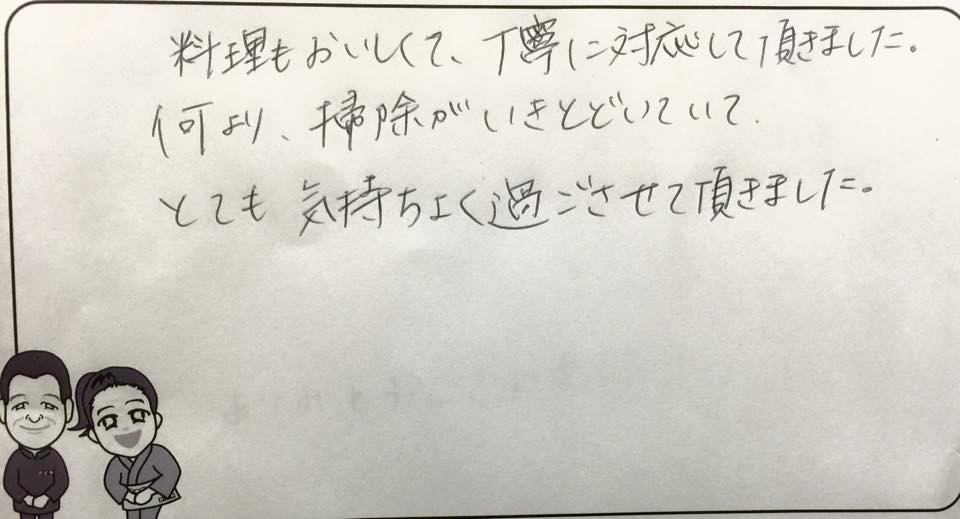 料理もおいしくて、丁寧に対応して頂きました。
何より、掃除がいきとどいていて
とても気持ちよく過ごさせて頂きました。